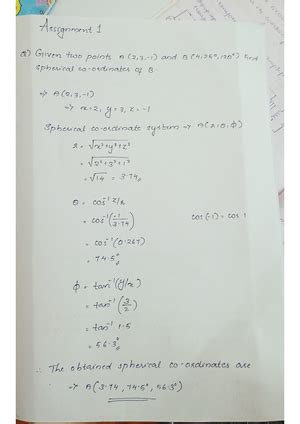 Assignment 1
Q) Given two points A(2,3,-1) and B(4,25°,120°) find
spherical co-ordinates of B.
=> A(2,3,-1)
=> x=2, y=3, z=-1
Spherical co-ordinate system => A(r,θ,ϕ)
r = √x²+y²+z²
= √2²+3²+1²
= √14 = 3.74
θ = cos⁻¹ z/r
= cos⁻¹(-1/3.74)
cos(-1) = cos 1
= cos⁻¹(0.267)
= 74.5°
ϕ = tan⁻¹(y/x)
= tan⁻¹(3/2)
= tan⁻¹ 1.5
= 56.3°
∴ The obtained spherical co-ordinates are
=> A(3.74, 74.5°, 56.3°)